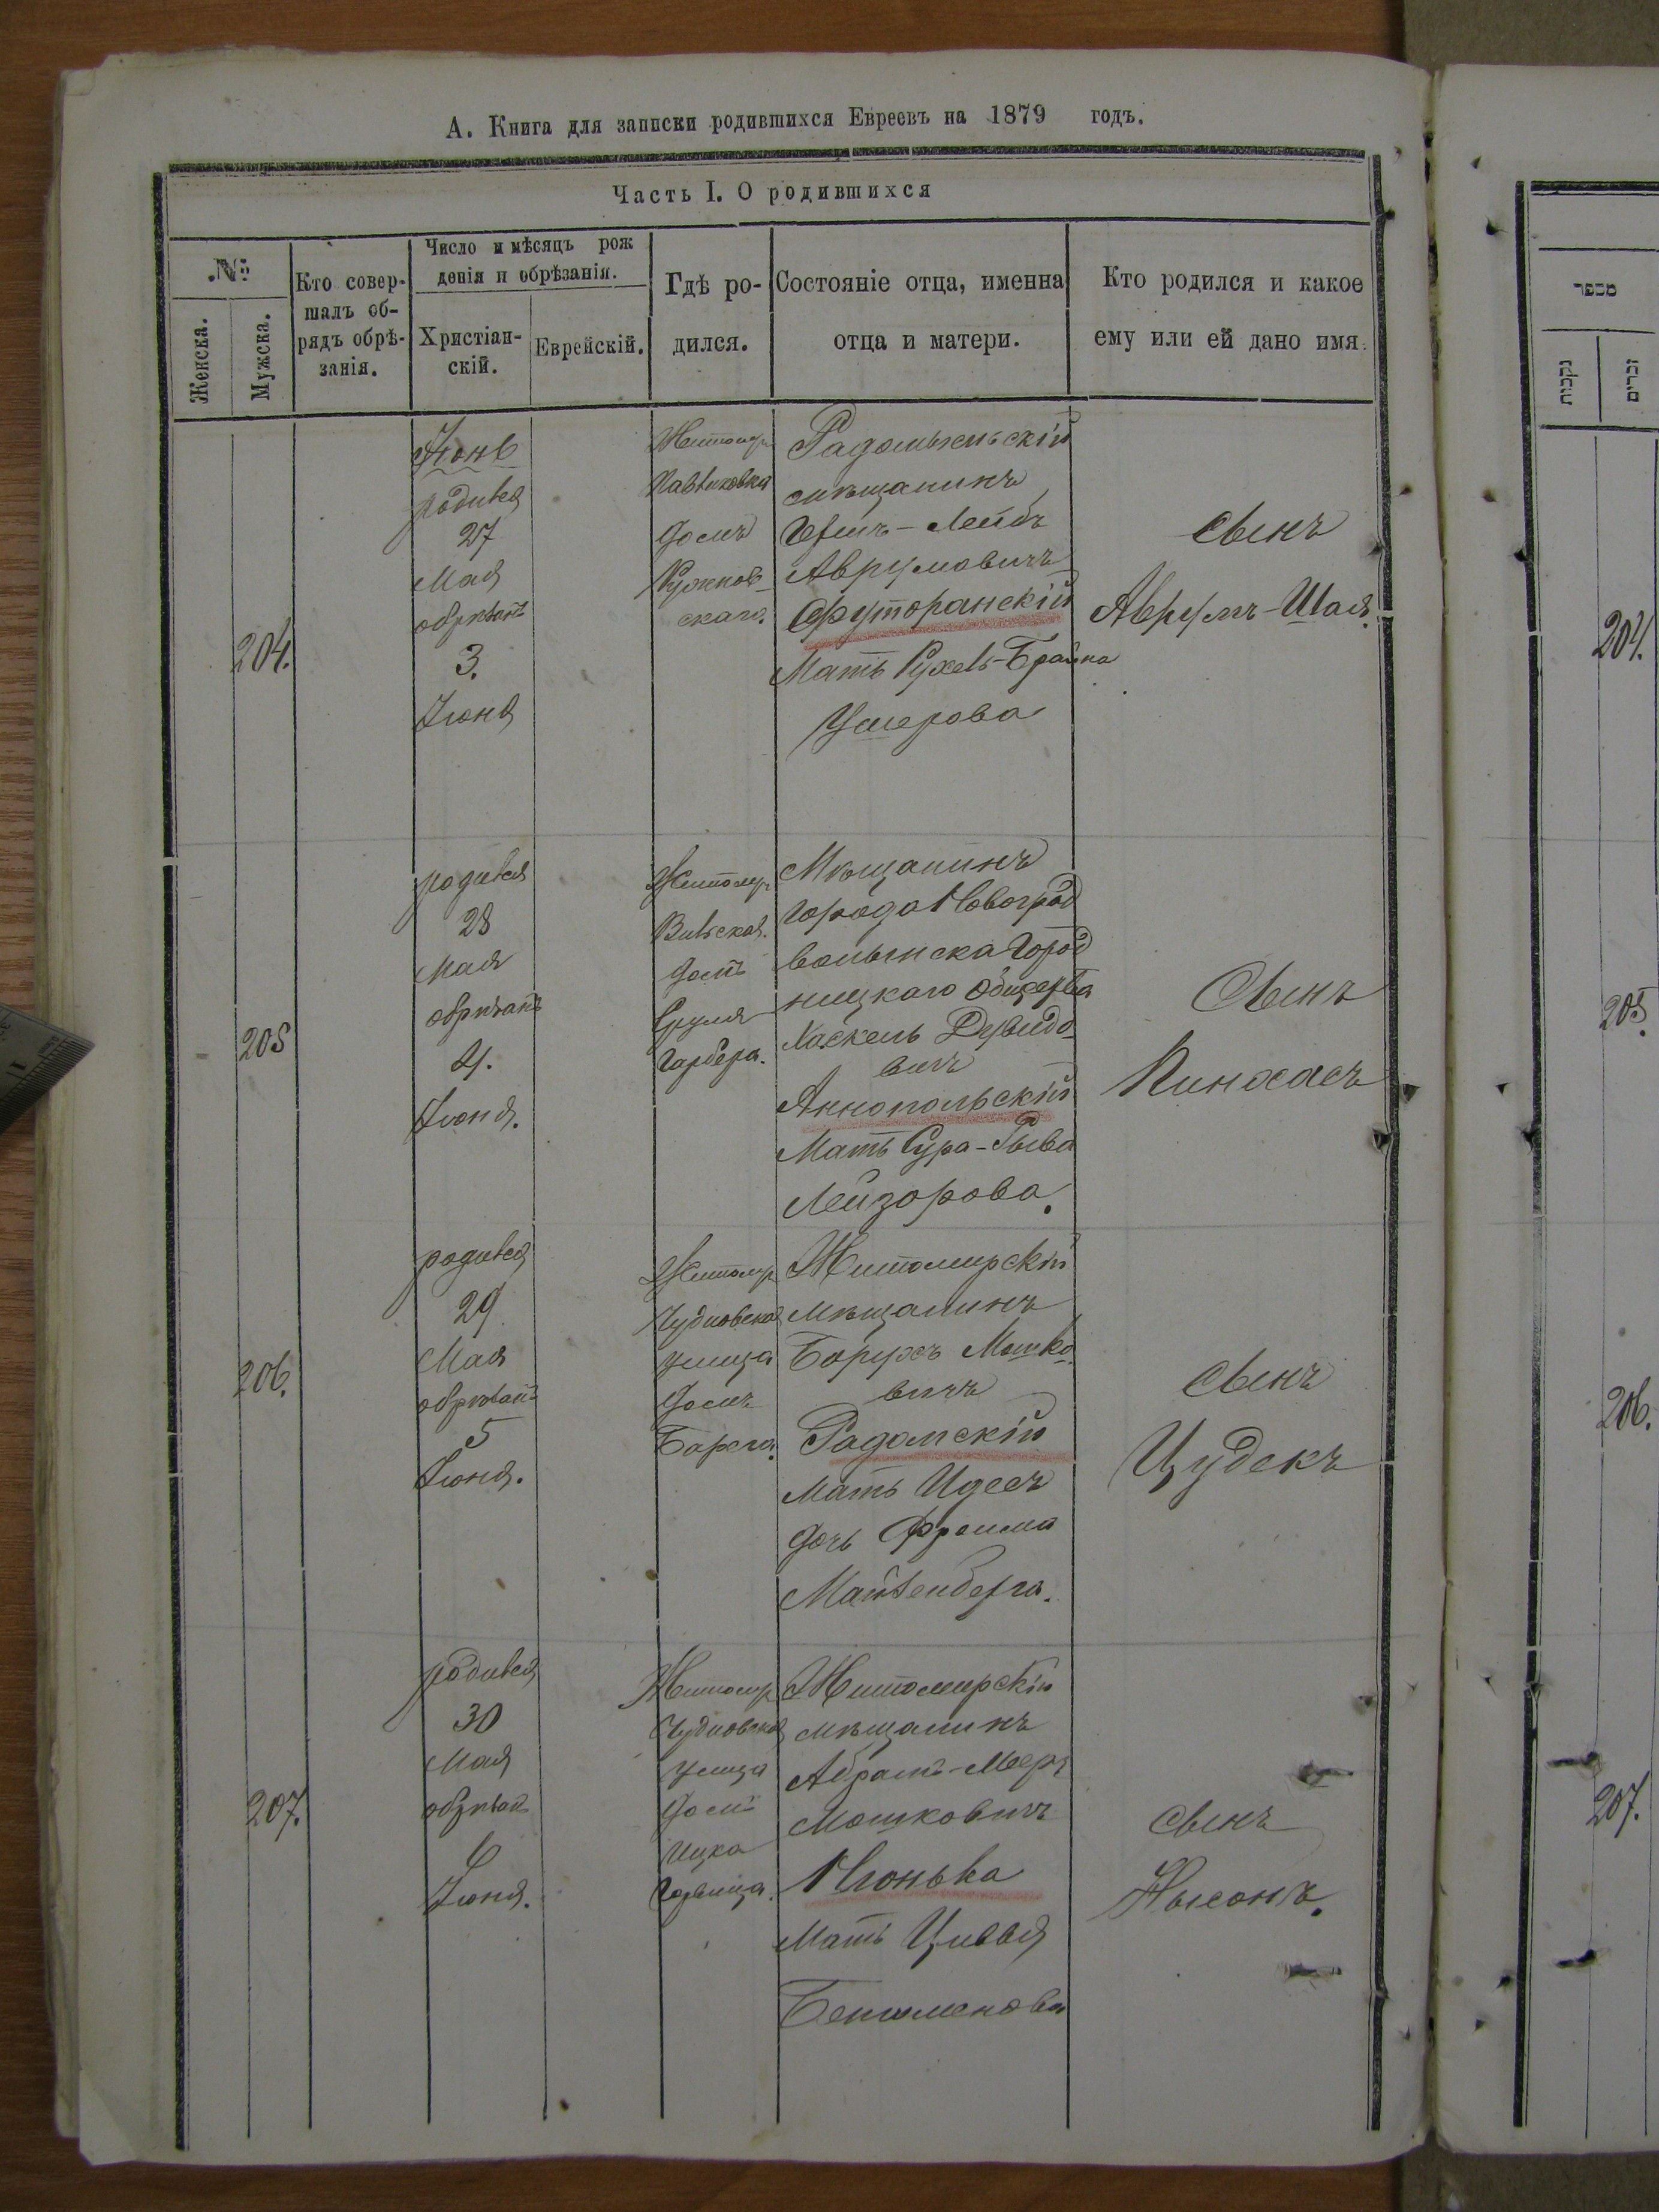 А. Книга для записки родившихся Евреевъ на 1879 годъ.
Часть I. О родившихся
№
Женска.
Мужска.
Кто совер-
шалъ об-
рядъ обрѣ-
занія.
Число и мѣсяцъ рож
денія и обрѣзанія.
Христіан-
скій.
Еврейскій.
Гдѣ ро-
дился.
Состояніе отца, именна
отца и матери.
Кто родился и какое
ему или ей дано имя.
204.
Іюнь
родился
27
Мая
обрѣзанъ
3.
Іюня
Житомир
домъ
скаго.
Радомысльскій
мѣщанинъ
Гершъ-Лейбъ
Аврумовичъ
Футоранскій
Мать Рухель-Брайна
Ушерова
сынъ
Аврумъ-Шая.
205
родился
28
Мая
обрѣзанъ
4.
Іюня.
Житомир
Вильская.
домъ
Сруля
Гарбера.
Мѣщанинъ
города Новоград
волынска Город
ницкаго Общества
Хаскель Дервидо-
вичъ
Аннопольскій
Мать Сура-Рыва
Лейзорова.
Сынъ
Пинхасъ
206.
родился
29
Мая
обрѣзанъ
5
Іюня.
Житомир
Чудновская
улица
домъ
Житомирскій
мѣщанинъ
Борухъ Мошко-
вичъ
Радомскій
Мать Идесъ
дочь Фроима
Майзенберга.
сынъ
Цудекъ
207.
родился
30
Мая
обрѣзанъ
6
Іюня.
Житомир
Чудновская
улица
домъ
Ицка
Горвица.
Житомирскій
мѣщанинъ
Абрамъ-Мееръ
Мошковичъ
Нюнька
Мать Цивья
Беньяменова
сынъ
Нысонъ.
מספר
נקבות
זכרים
204.
205.
206.
207.